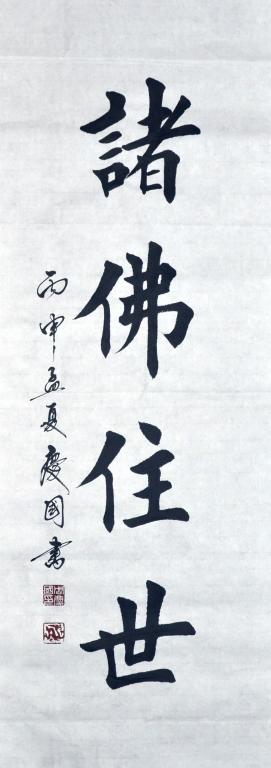 諸佛住世
丙申孟夏慶國書